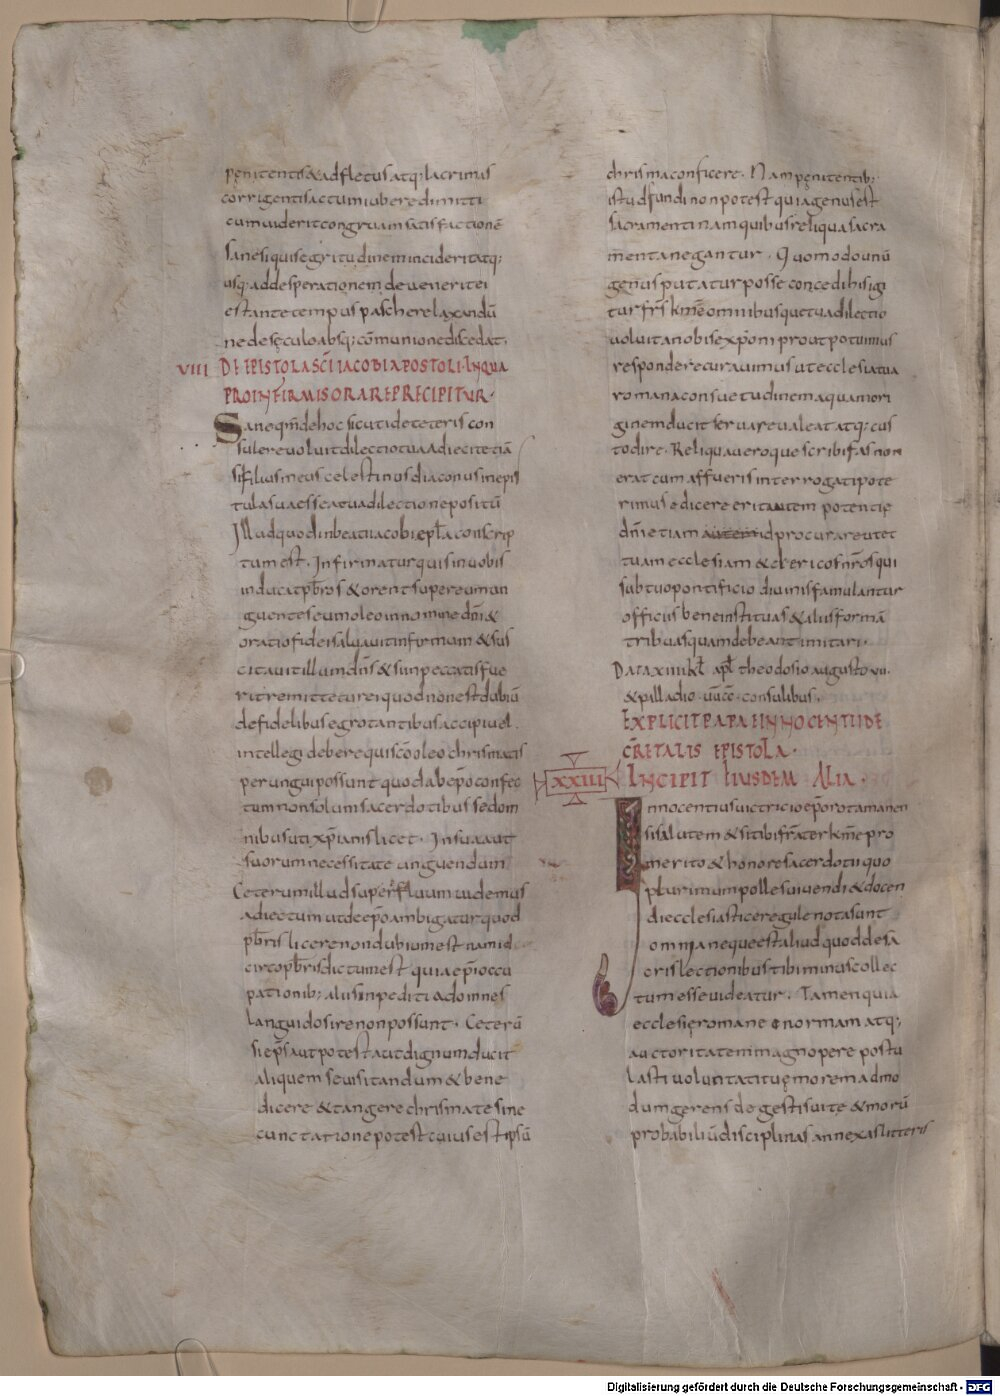 penitentis & ad fletus atq; lacrimas
corrigentis ac tum iubere dimitti
cum uiderit congruam satisfactionē
Sane si quis egritudinem inciderit atq;
usq; ad desperationem deuenerit ei
est ante tempus pasche relaxandū
ne de sęculo absq; cōmunione discedat;
VIII DE EPISTOLA SCĪ IACOBI APOSTOLI IN QUA
PRO INFIRMIS ORARE PRECIPITUR·
Sane qm̄ de hoc sicuti de ceteris con
sulere uoluit dilectio tua adiecit etiā
filius meus celestinus diaconus in epis
tula sua esse a tua dilectione positū
Illud quod in beati iacobi epl̄a conscrip
tum est. Infirmatur quis in uobis
inducat pb̄ros & orent super eum un
guentes eum oleo in nomine dn̄i &
oratio fidei saluauit infirmum & sus
citauit illum dn̄s & si in peccatis fue
rit remittet ei quod non est dubiū
de fidelibus egrotantibus accipi uel
intellegi debere qui sc̄o oleo chrismatis
perungui possunt quod ab ep̄o confec
tum non solum sacerdotibus sed om
nibus uti xp̄ianis licet. In sua aut
suorum necessitate unguendum
Ceterum illud superfluum uidemus
adiectum ut de ep̄o ambigatur quod
pb̄ris licere non dubium est nam id
circo pb̄ris dictum est quia ep̄i occu
pationib; aliis inpediti ad omnes
languidos ire non possunt. Ceterū
si ep̄s aut potest aut dignum ducit
aliquem se uisitandum & bene
dicere & tangere chrismate sine
cunctatione potest cuius est ipsū
chrisma conficere. Nam penitentib;
istud fundi non potest quia genus est
sacramenti nam quibus reliqua sacra
menta negantur. Quomodo unū
genus putatur posse concedi his igi
tur fr̄s km̄e omnibus que tua dilectio
uoluit a nobis exponi prout potuimus
respondere curauimus ut ecclesia tua
romana consuetudinem a qua mori
ginem ducit seruare ualeat atq; cus
todire. Reliqua uero que scribi fas non
erat cum affueris interrogati pote
rimus edicere erit autem potentię
dn̄i etiam id procurare ut et
tuam ecclesiam & clericos nr̄os qui
sub tuo pontificio diuinis famulantur
officiis bene instituas & aliis formā
tribuas quam debeant imitari.
Data xiiii kl̄ apl̄ theodosio augusto vii
& palladio uūcc consulibus.
EXPLICIT PAPAE INNOCENTII DE
CRETALIS EPISTOLA·
XXIII INCIPIT EIUSDEM ALIA·
Innocentius uictricio ep̄o rotamagen
si salutem & si tibi frater km̄e pro
merito & honore sacerdotii quo
plurimum polles uiuendi & docen
di ecclesiasticę regule nota sunt
omnia neque est aliud quod de sa
cris lectionibus tibi minus collec
tum esse uideatur. Tamen quia
ecclesię romane normam atq;
auctoritatem magnopere postu
lasti uoluntati tuę morem admo
dum gerens degestis uite & morū
probabiliū disciplinas annexas litteris
Digitalisierung gefördert durch die Deutsche Forschungsgemeinschaft - DFG